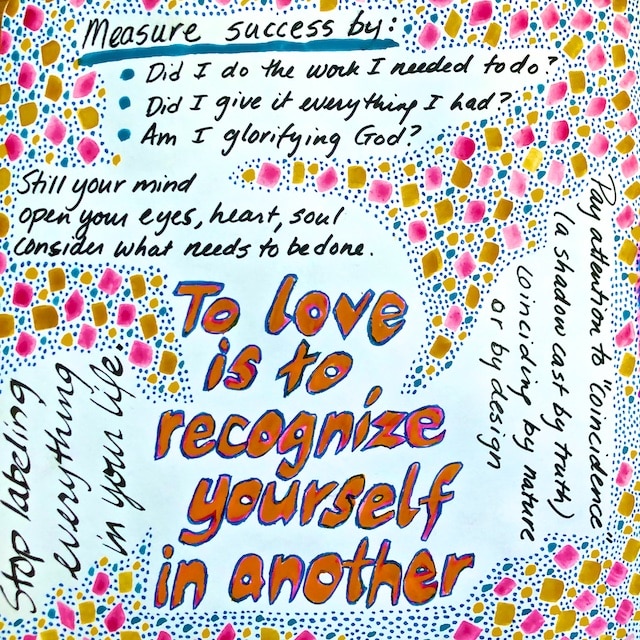 Measure success by:
• Did I do the work I needed to do?
• Did I give it everything I had?
• Am I glorifying God?
Still your mind
open your eyes, heart, soul
Consider what needs to be done.
To love
is to
recognize
yourself
in another
Pay attention to "coincidence"
(a shadow cast by truth)
coinciding by nature
or by design
Stop labeling
everything
in your life.